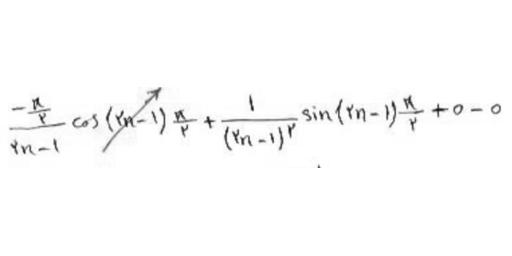 \frac{-\frac{\pi}{۲}}{۲n-1} cos (۲n-1) \frac{\pi}{۲} + \frac{1}{(۲n-1)^۲} sin (۲n-1) \frac{\pi}{۲} + 0 - 0